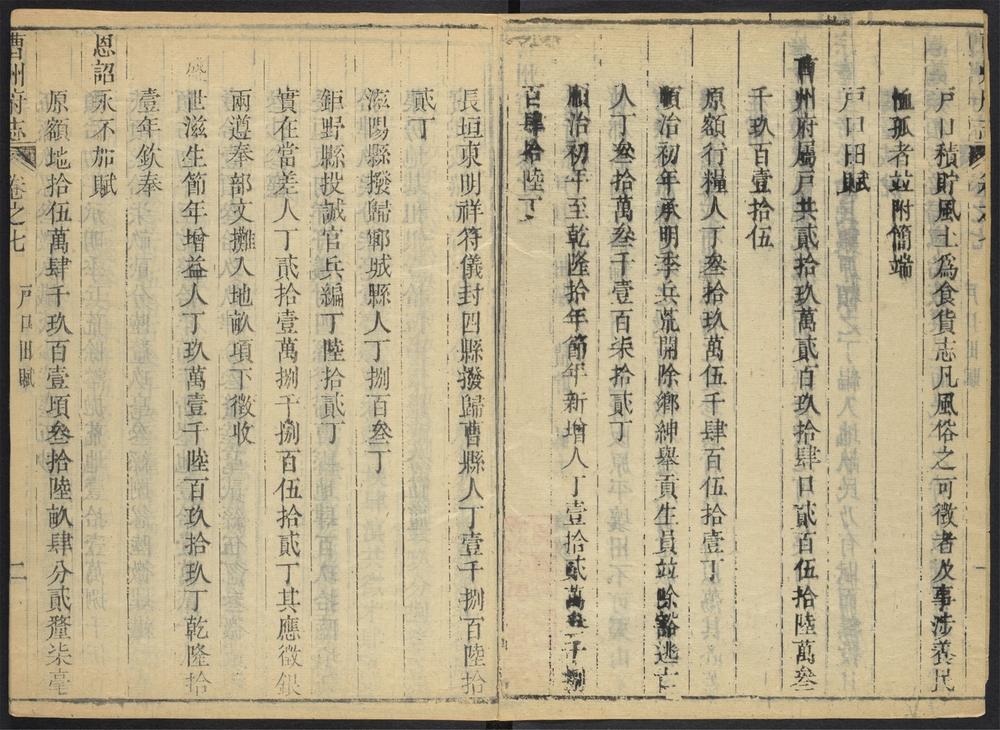 戶口積貯風土為食貨志凡風俗之可徵者及事涉養民
恤孤者竝附簡端
戶口田賦
曹州府屬戶共貳拾玖萬貳百玖拾肆口貳百伍拾陸萬叄
千玖百壹拾伍
原額行糧人丁叄拾玖萬伍千肆百伍拾壹丁
順治初年承明季兵荒開除鄉紳舉貢生員竝除豁逃亡
人丁叄拾萬叄千壹百柒拾貳丁
順治初年至乾隆拾年節年新增人丁壹拾貳萬 千捌
百肆拾陸丁
長垣東明祥符儀封四縣撥歸曹縣人丁壹千捌百陸拾
貳丁
滋陽縣撥歸鄆城縣人丁捌百叄丁
鉅野縣投誠官兵編丁陸拾貳丁
實在當差人丁貳拾壹萬捌千捌百伍拾貳丁其應徵銀
兩遵奉部文攤入地畝項丁徵收
盛
世滋生節年增益人丁玖萬壹千陸百玖拾玖丁乾隆拾
壹年欽奉
恩詔
永不加賦
原額地拾伍萬肆千玖百壹項叄拾陸畝肆分貳釐柒毫
曹州府志 卷之七 戶口田賦 二